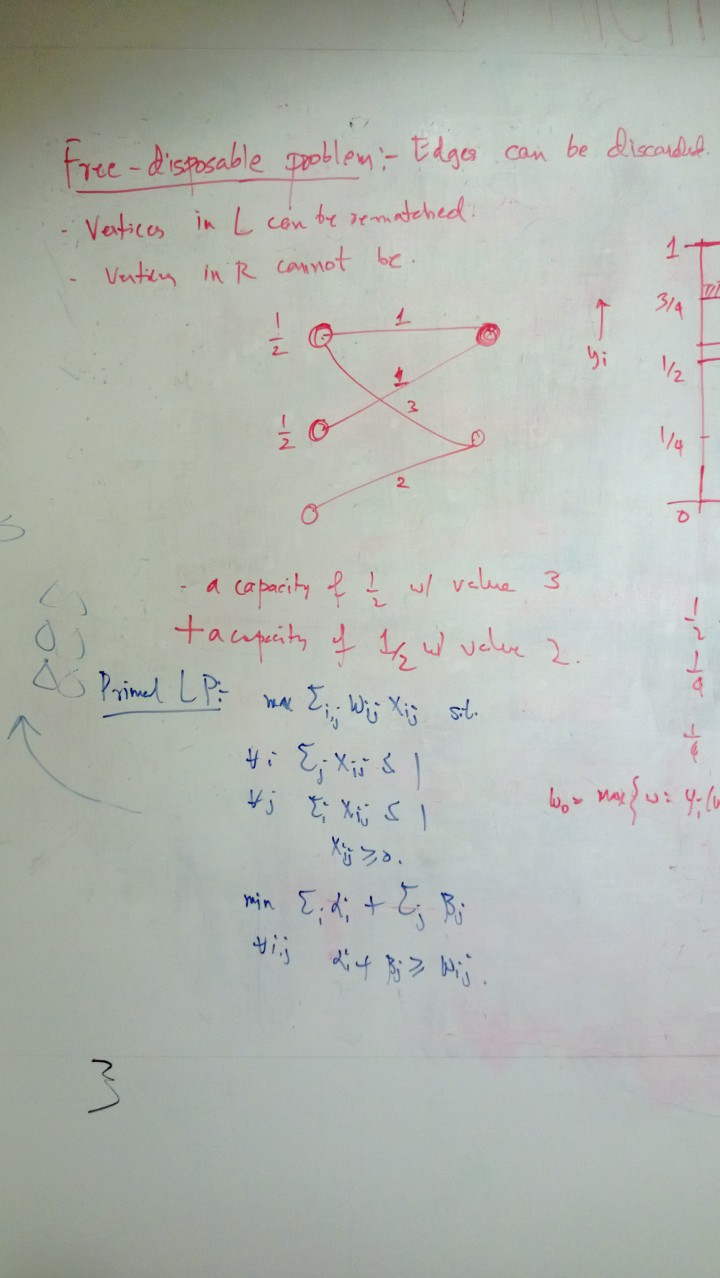 Free-disposable problem:- Edges can be discarded.
- Vertices in L can be rematched.
- Vertices in R cannot be.
1/2
1
1/2
1
3
2
1
3/4
yi
1/2
1/4
0
- a capacity of 1/2 w/ value 3
+ a capacity of 1/2 w/ value 2.
1/2
1/4
1/4
Primal LP:- max Σi,j Wij Xij s.t.
∀i Σj Xij ≤ 1
∀j Σi Xij ≤ 1
Xij ≥ 0.
w0 = max{w: yi(w
min Σi αi + Σj βj
∀i,j αi + βj ≥ Wij.
3